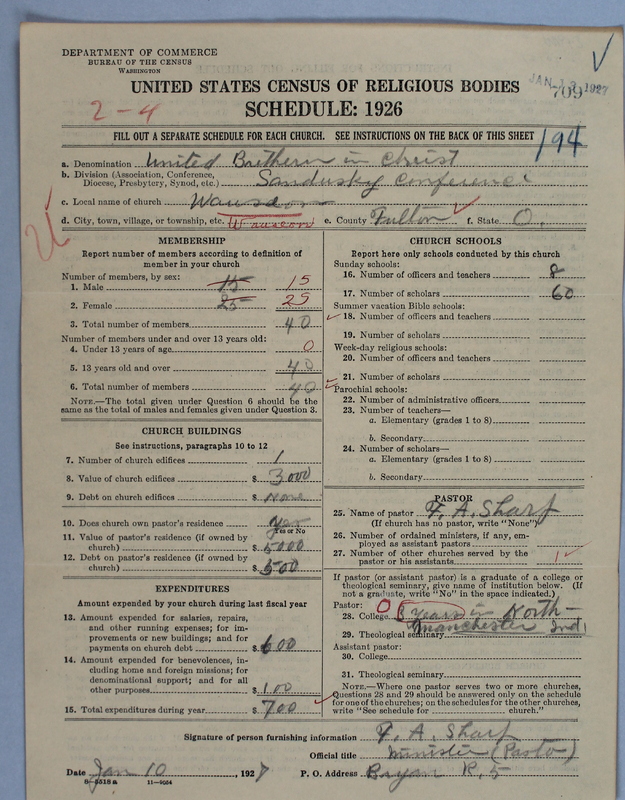 DEPARTMENT OF COMMERCE
BUREAU OF THE CENSUS
WASHINGTON
JAN 1927
709
UNITED STATES CENSUS OF RELIGIOUS BODIES
2-4
SCHEDULE: 1926
FILL OUT A SEPARATE SCHEDULE FOR EACH CHURCH. SEE INSTRUCTIONS ON THE BACK OF THIS SHEET
194
a. Denomination United Brethern in Christ
b. Division (Association, Conference, Diocese, Presbytery, Synod, etc.) Sandusky Conference
c. Local name of church Wauseon
d. City, town, village, or township, etc. Wauseon e. County Fulton f. State O.
MEMBERSHIP
Report number of members according to definition of
member in your church
Number of members, by sex:
1. Male 15 15
2. Female 25 25
3. Total number of members 40
Number of members under and over 13 years old:
4. Under 13 years of age 0
5. 13 years old and over 40
6. Total number of members 40
NOTE.—The total given under Question 6 should be the
same as the total of males and females given under Question 3.
CHURCH BUILDINGS
See instructions, paragraphs 10 to 12
7. Number of church edifices 1
8. Value of church edifices $ 3000
9. Debt on church edifices $ None
10. Does church own pastor's residence yes
Yes or No
11. Value of pastor's residence (if owned by
church) $ 5000
12. Debt on pastor's residence (if owned by
church) $ 500
EXPENDITURES
Amount expended by your church during last fiscal year
13. Amount expended for salaries, repairs,
and other running expenses; for im-
provements or new buildings; and for
payments on church debt $ 600
14. Amount expended for benevolences, in-
cluding home and foreign missions; for
denominational support; and for all
other purposes $ 100
15. Total expenditures during year $ 700
CHURCH SCHOOLS
Report here only schools conducted by this church
Sunday schools:
16. Number of officers and teachers 8
17. Number of scholars 60
Summer vacation Bible schools:
18. Number of officers and teachers
19. Number of scholars
Week-day religious schools:
20. Number of officers and teachers
21. Number of scholars
Parochial schools:
22. Number of administrative officers
23. Number of teachers—
a. Elementary (grades 1 to 8)
b. Secondary
24. Number of scholars—
a. Elementary (grades 1 to 8)
b. Secondary
PASTOR
25. Name of pastor F. A. Sharf
(If church has no pastor, write "None")
26. Number of ordained ministers, if any, em-
ployed as assistant pastors
27. Number of other churches served by the
pastor or his assistants 1
If pastor (or assistant pastor) is a graduate of a college or
theological seminary, give name of institution below. (If
not a graduate, write "No" in the space indicated.)
Pastor:
28. College 0 3 years in North-
29. Theological seminary Manchester Ind
Assistant pastor:
30. College
31. Theological seminary
NOTE.—Where one pastor serves two or more churches,
Questions 28 and 29 should be answered only on the schedule
for one of the churches; on the schedules for the other churches,
write "See schedule for church."
Signature of person furnishing information F. A. Sharf
Official title Minister (Pastor)
Date Jan 10, 1927 P. O. Address Bryan R. 5
8-5518a 11-9054